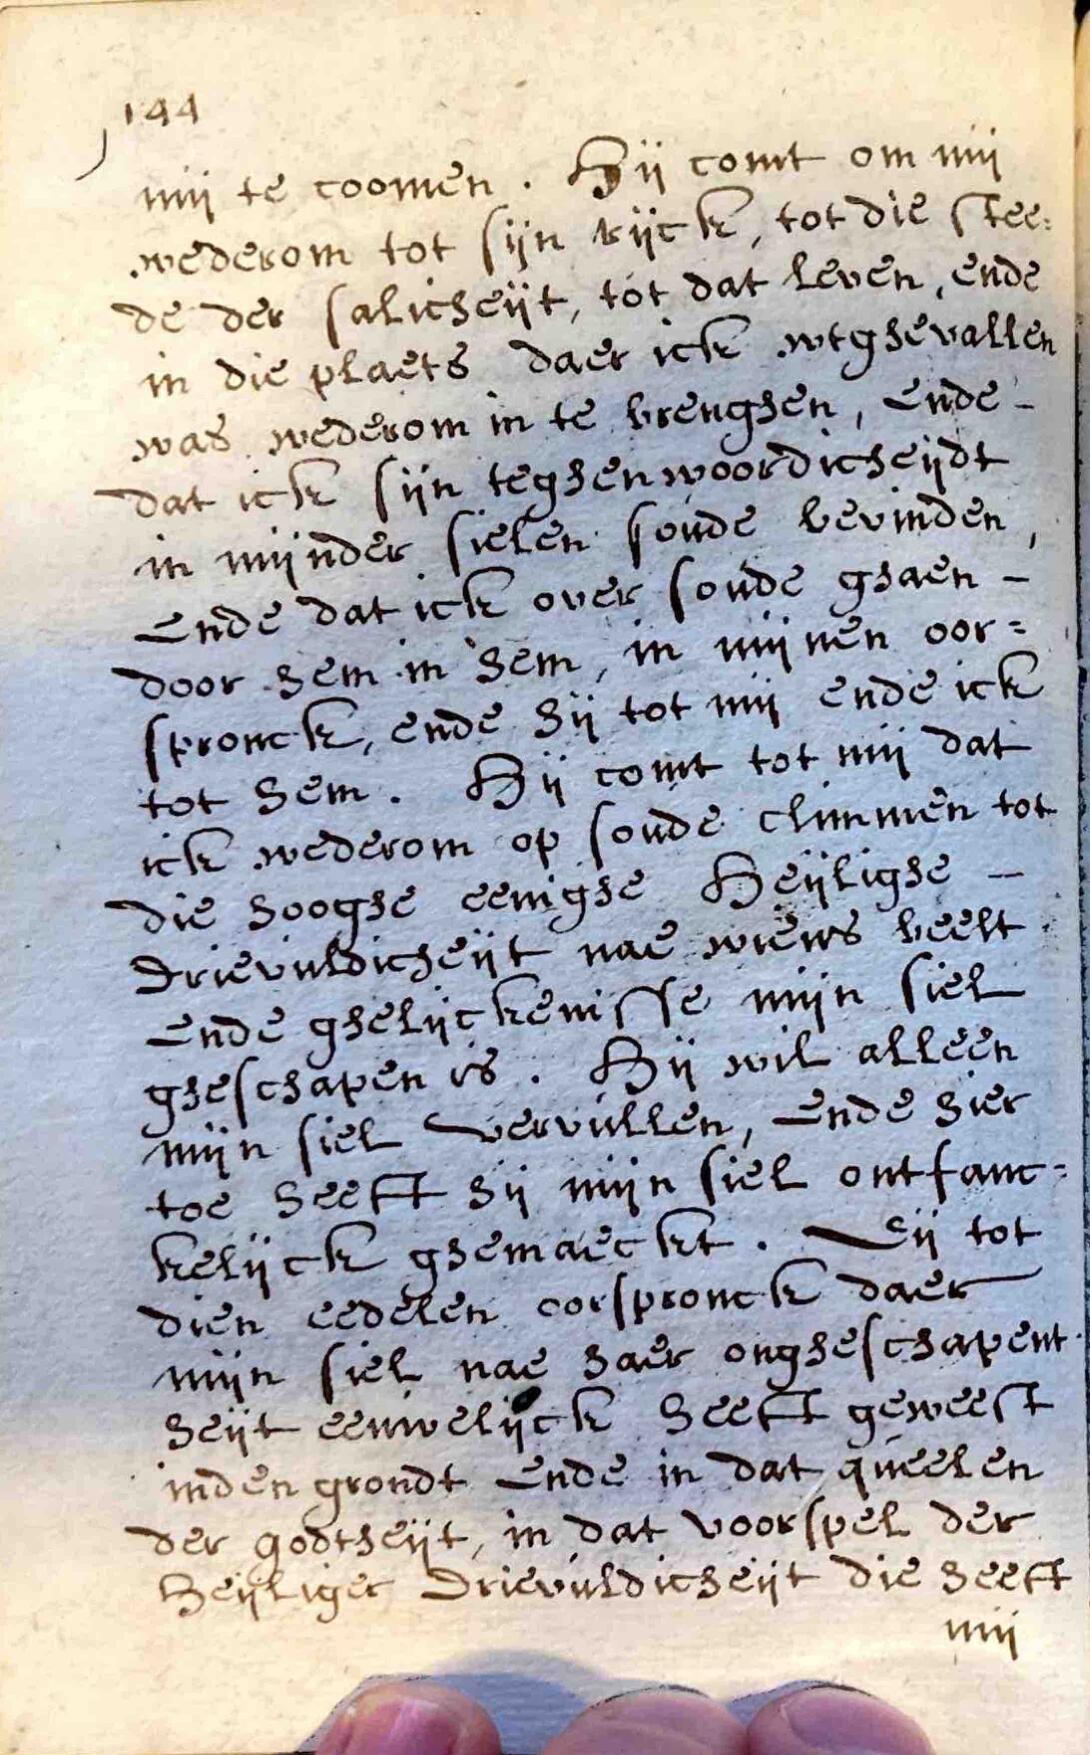 144
mij te coomen. Hij comt om mij
wederom tot sijn rijck, tot die stee:
de der salicheijt, tot dat leven, ende
in die plaets daer ick wtghevallen
was wederom in te brenghen, ende -
dat ick sijn teghenwoordicheijdt
in mijnder sielen soude bevinden,
Ende dat ick over soude ghaen -
door hem in hem, in mijnen oor=
spronck, ende hij tot mij ende ick
tot hem. Hij comt tot mij dat
ick wederom op soude climmen tot
die hooghe eenighe Heijlighe -
Drievuldicheijt nae wiens beelt
Ende ghelijckenisse mijn siel
gheschapen is. Hij wil alleen
mijn siel vervullen, Ende hier
toe heeft hij mijn siel ontfanc=
kelijck ghemaeckt. Eij tot
dien eedelen oorspronck daer
mijn siel nae haer ongheschapent
heijt eeuwelijck heeft geweest
inden grondt Ende in dat queelen
der godtheijt, in dat voorspel der
Heijliger Drievuldicheijt die heeft
mij